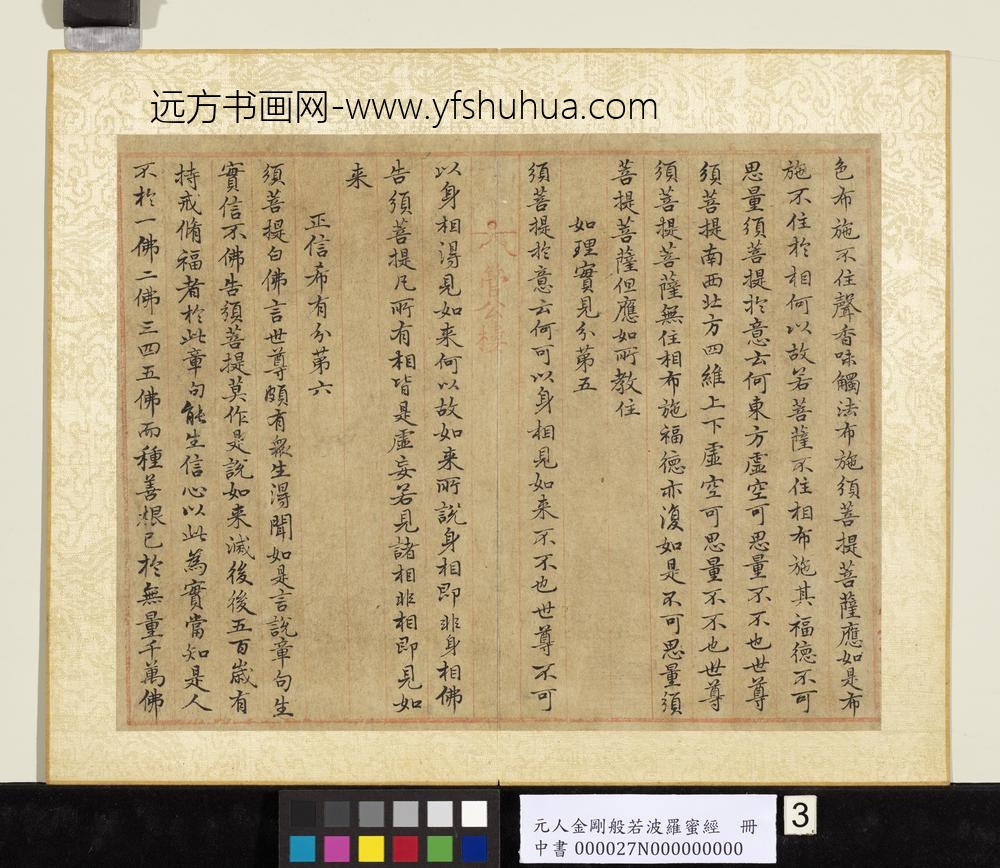 远方书画网-www.yfshuhua.com
色布施不住聲香味觸法布施須菩提菩薩應如是布
施不住於相何以故若菩薩不住相布施其福德不可
思量須菩提於意云何東方虛空可思量不不也世尊
須菩提南西北方四維上下虛空可思量不不也世尊
須菩提菩薩無住相布施福德亦復如是不可思量須
菩提菩薩但應如所教住
如理實見分第五
須菩提於意云何可以身相見如来不不也世尊不可
以身相得見如来何以故如来所說身相即非身相佛
告須菩提凡所有相皆是虛妄若見諸相非相即見如
来
正信希有分第六
須菩提白佛言世尊頗有衆生得聞如是言說章句生
實信不佛告須菩提莫作是說如来滅後後五百歲有
持戒脩福者於此章句能生信心以此為實當知是人
不於一佛二佛三四五佛而種善根已於無量千萬佛
元人金剛般若波羅蜜經 冊
中書000027N000000000
3